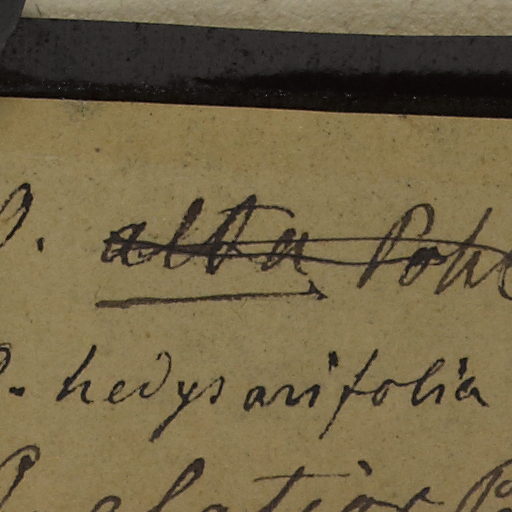 alta Pohl
hedysarifolia
elatior